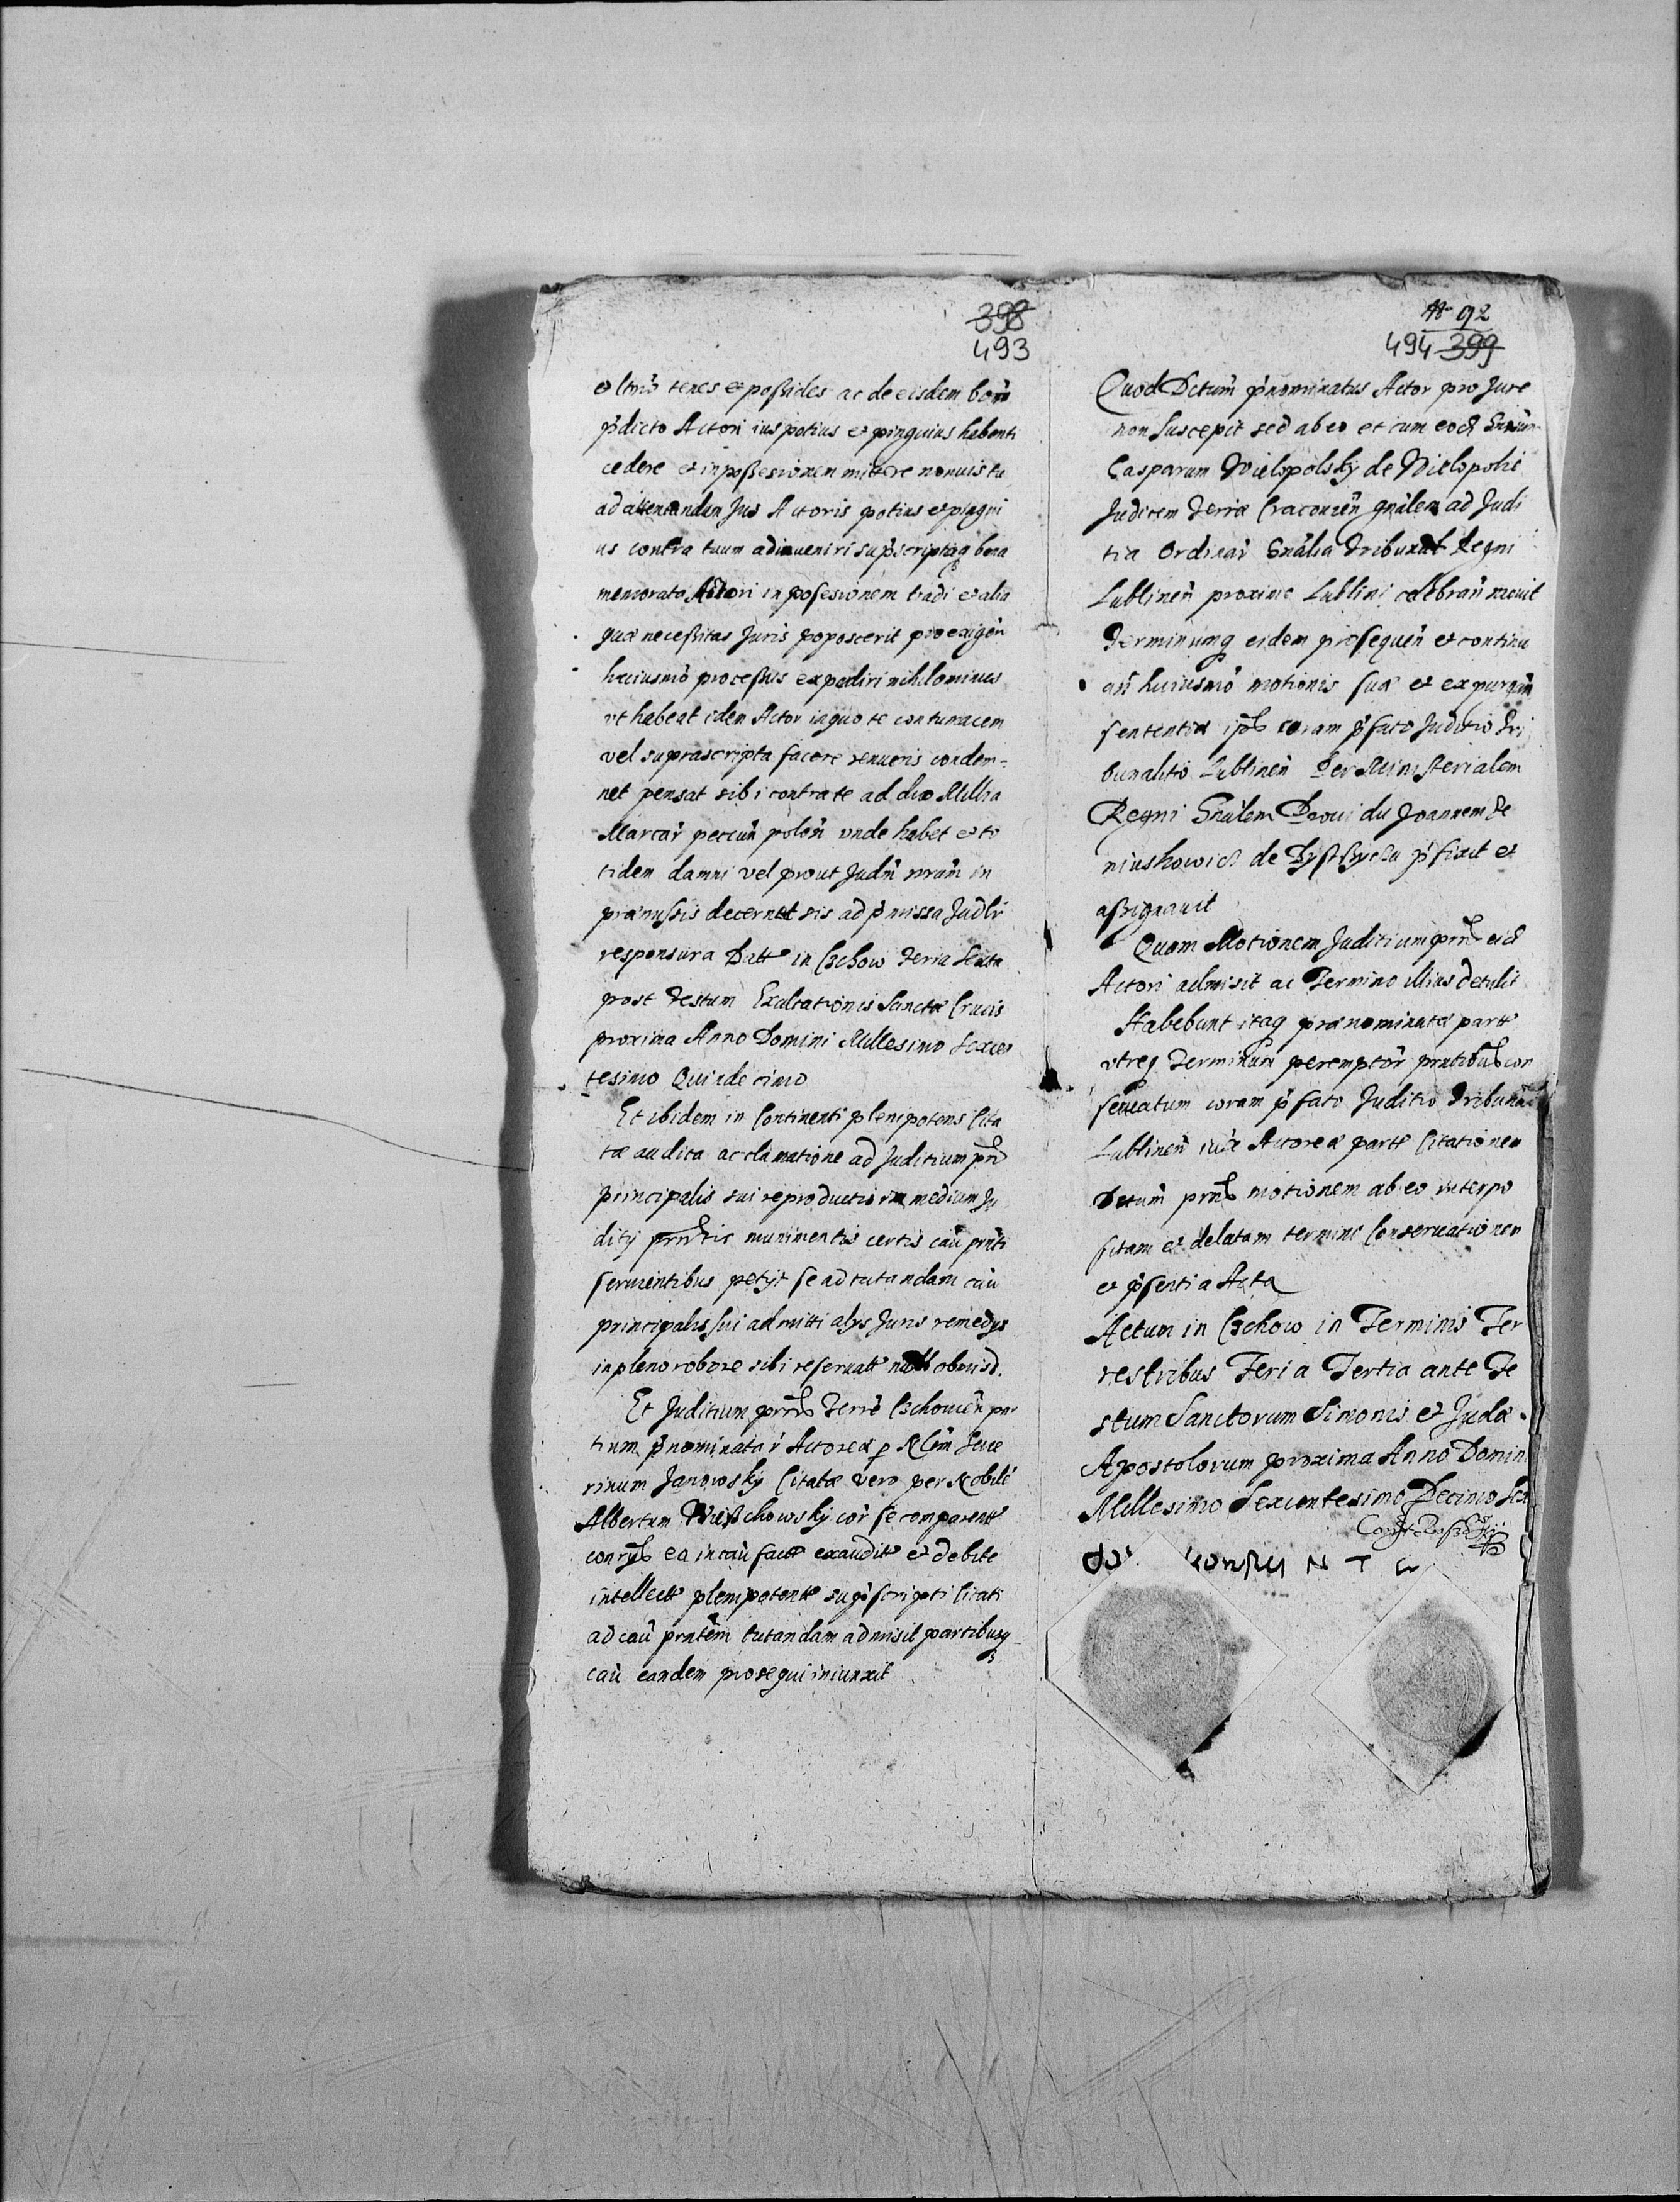 398
493
tenes et possides ac de eisdem bonis
pdicto Actori ius potius et pinguius habenti
cedere et in possessionem mittere nonuis tu
ad attentandam Jus Actoris potius et pingui
us contra tuum adinueniri supscriptaq bona
memorata Actori in posesionem tradi et alia
quæ necessitas Juris poposcerit pro exigen
huiusmo processus expediri nihilominus
vt habeat idem Actor in quo te contumacem
vel suprascripta facere renueris condem=
net pensat sibi contra te ad duo Millia
Marcar pecun polon vnde habet et to
tidem damni vel prout Judm nram in
præmissis decernet sis ad pmissa Judlr
responsura Datt in Czchow Feria Sexta
post Festum Exaltationis Sanctæ Crucis
proxima Anno Domini Millesimo Sexcen
tesimo Quindecimo
Et ibidem in Continenti plenipotens Cita
tæ audita acclamatione ad Juditium pn
principalis sui reproductis in medium Ju
dity munimentis certis cau pnti
seruientibus petyt se ad tutandam cau
principalis sui admitti alys Juris remedys
in pleno robore sibi reseruatt
Et Juditium pns Terre Czchouien par
tium pnominatar Actoreæ p Nlem Seue
rinum Janowsky Citatæ vero per Nobile
Albertum cor se comparentt
ea in cau fact exaudit et debite
intellect plenipotente supscripti Citati
ad cau pntem tutandam admisit partibusq
cau eandem prosequi iniunxit
No 92
494 399
Quod Dctum pnominatus Actor pro Jure
non suscepit sed ab eo et cum eod
Casparum Wielopolsky de Wielopolie
Judicem Terræ Cracouien gnalem ad Judi
tia Ordinar Gnalia Tribunal Regni
Lublinen proxime Lublini celebran mouit
Terminumq eidem prosequen et continu
an huiusmo motionis suæ et expurgan
sententiæ ips coram pfato Juditio Tri
bunalitio Lublinen Per Ministerialem
Regni Gnalem Proui du Joannem
de pfixit et
assignauit
Quam Motionem Juditium pns eid
Actori admisit ac Termino illius detulit
Habebunt itaq prænominatæ part
vtreq Terminum peremptor con
seruatum coram pfato Juditio Tribunal
Lublinen iuxa Actoreæ parte Citationem
Dctum pns motionem ab eo interpo
sitam et delatam termini Conseruationem
et psentia Acta
Actum in Czchow in Terminis Ter
restribus Feria Tertia ante Fe
stum Sanctorum Simonis et Judæ
Apostolorum proxima Anno Domini
Millesimo Sexcentesimo Decimo Sex